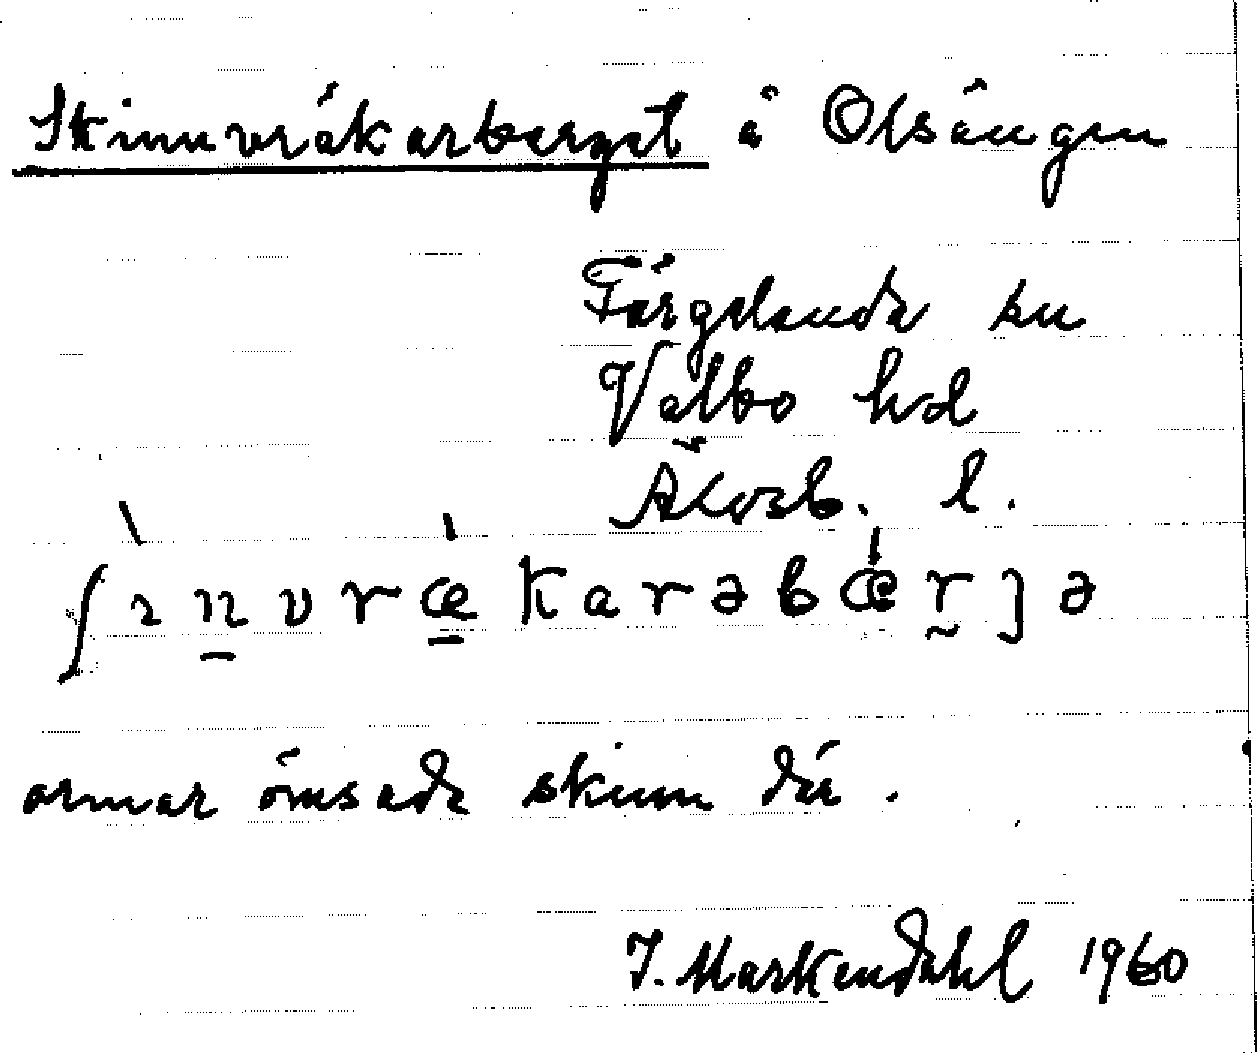 Skinnvräkarberget å Olsängen
Färgelanda sn
Valbo hd
Älvsb. l.
ʃɪnvrækarəbærjə
ormar ömsade skinn där.
I. Markendahl 1960